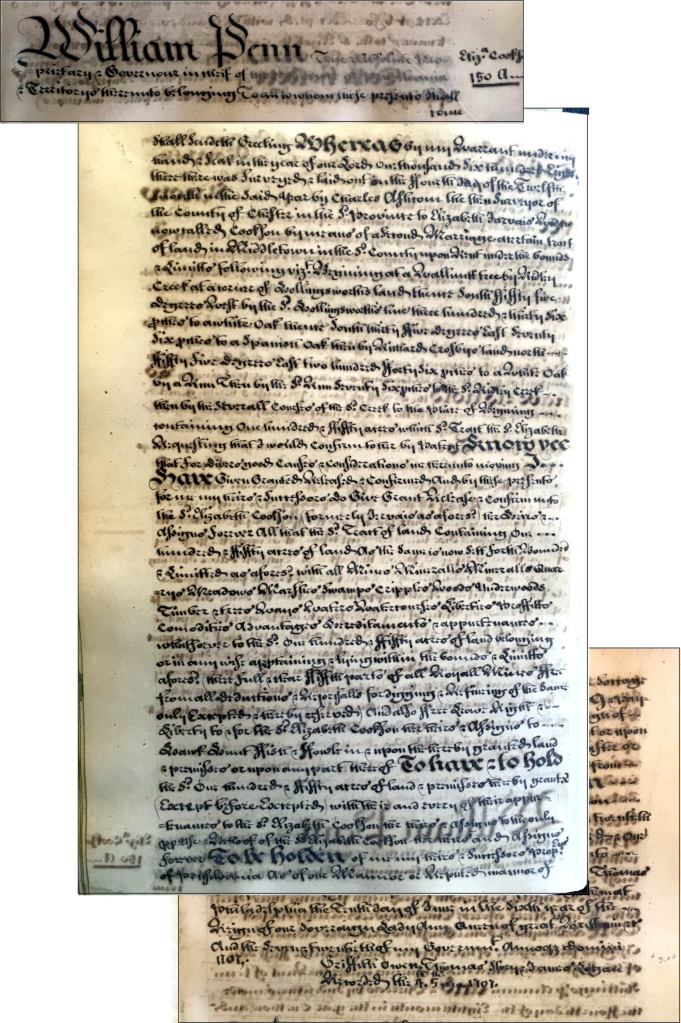 William Penn
Eliz.a Cooks
prietary & Governour in cheif of
150 A
& Territorys thereunto belonging To all to whom these presents shall
come
shall send Greeting Whereas by my Warrant under my
hand & Seal in the year of our Lord One thousand six hundred Eighty
three there was Surveyed & laid out on the ffourth day of the Twelfth
month in the said year by Charles Ashcom then Surveyor of
the County of Chester in the sd. Province to Elizabeth Jarvais
now called Cookson by means of a second Marriage a certain tract
of land in Middletown in the sd. County upon Rent under the bounds
& Limitts following vizt. Begining at a Wallnutt tree by Ridley
Creek at a corner of Hollingsworths land thence South ffiffty five
degrees West by the sd. Hollingsworths line three hundred & twenty six
pches to a white Oak thence South thirty ffive degrees East seventy
six pches to a Spanish Oak then by Richard Crosbys land north
ffiffty ffive degrees East two hundred fforty six pches to a White Oak
by a Run Then by the sd. Run seventy six pches to the sd. Ridley Creek
then by the severall Courses of the sd. Creek to the place of Begining
containing One hundred & ffiffty acres which sd. Tract the sd. Elizabeth
Requesting that I would Confirm to her by Patent Know yee
that for divers good Causes & Considerations me thereunto moving I
Have Given Granted Released & Confirmed And by these presents
for me my heirs & Successors do Give Grant Release & Confirm unto
the sd. Elizabeth Cookson (formerly Jervais as aforesd.) her Heirs &
Assigns Forever All that the sd. Tract of land Containing One
hundred & ffiffty acres of land As the same is now Sett Forth Bounded
& Limitted as aforesd. with all Mines Mineralls Quar
rys Meadows Marshes Swamps Cripples Woods Underwoods
Timber & trees Ways Waters Watercourses Liberties Proffitts
Comodities Advantages Hereditaments & appurtenances
whatsoever to the sd. One hundred & ffiffty acres of land belonging
or in any wise appertaining & lying within the bounds & Limitts
aforesd. three Full & clear ffiffth parts of all Royall Mines ffree
from all deductions & Reprisalls for digging & Refining of the same
only Excepted & hereby reserved) And also ffree Leave Right &
Liberty to & for the sd. Elizabeth Cookson her heirs & Assigns to
Hawk Hunt ffish & ffowle in & upon the hereby granted land
& premisses or upon any part thereof To have & to hold
the sd. One hundred & ffiffty acres of land & premisses hereby granted
(Except before Excepted) with their and every of their appur
tenances to the sd. Elizabeth Cookson her heirs & Assigns to the only
use & behoof of the sd. Elizabeth Cookson her heirs and Assigns
Forever To be holden of me my heirs & Successors Propry.
of Pensilvania As of our Mannor or Reputed mannor of
Thomas
Philadelphia the Tenth day of June in the sixth year of the
Reign of our Sovereign Lady Ann Queen of great Brittain &c
And the seven & twentieth of my Governmt. Annoq. Domini
1707. Griffith Owen, Thomas Story, James Logan
Recorded the 4. 5 mo. 1707.